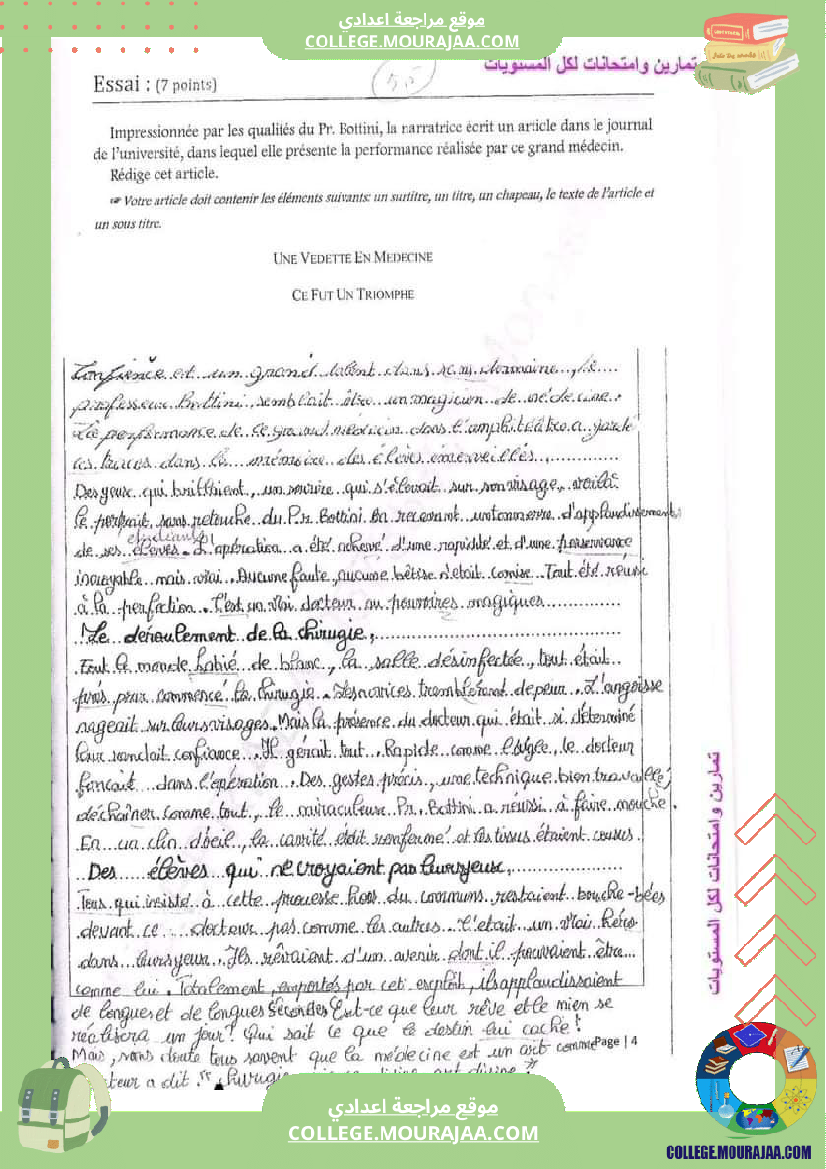 موقع مراجعة اعدادي
COLLEGE.MOURAJAA.COM
تمارين وامتحانات لكل المستويات
Essai : (7 points)
5,5
Impressionnée par les qualités du Pr. Bottini, la narratrice écrit un article dans le journal
de l'université, dans lequel elle présente la performance réalisée par ce grand médecin.
Rédige cet article.
☞ Votre article doit contenir les éléments suivants: un surtitre, un titre, un chapeau, le texte de l'article et
un sous titre.
UNE VEDETTE EN MEDECINE
CE FUT UN TRIOMPHE
Confience et un grand talent dans son domaine, le
professeur Bottini, semblait être un magicien de médecine.
La performance de ce grand médecin dans l'amphithéâtre a gardé
ses traces dans la mémoire des élèves émerveillés,
Des yeux qui brillaient, un sourire qui s'élevait sur son visage, voilà
le portrait sans retouche du Pr. Bottini en recevant un tonnerre d'applaudissements
étudiants
de ses élèves. L'opération a été achevé d'une rapidité et d'une perseverance
incroyable mais vrai. Aucune faute, aucune bêtise n'était comise. Tout été réussi
à la perfection. C'est un vrai docteur au pouvoires magiques
Le déroulement de la chirugie,
Tout le monde habié de blanc, la salle désinfectée, tout était
près pour commencé la chirugie. Les novices tremblèrent de peur. L'angoisse
nageait sur leurs visages. Mais la présence du docteur qui était si déterminé
leur rendait confiance. Il gérait tout. Rapide comme l'éugle, le docteur
fonçait dans l'opération. Des gestes précis, une technique bien travaillé,
déchaîner comme tout, le miraculeux Pr. Bottini a réussi à faire mouche.
En un clin d'oeil, la cavité était renfermé et les tissus étaient cousus.
Des élèves qui ne croyaient pas leurs yeux,
Tous qui insisté à cette prouesse hors du communs restaient bouche-bées
devant ce docteur pas comme les autres. C'etait un vrai héro
dans leurs yeux. Ils rêvaient d'un avenir dont il pouvaient être
comme lui. Totalement, emportés par cet exploit, ils applaudissaient
de longues et de longues secondes Est-ce que leur rêve et le mien se
réalisera un jour? Qui sait ce que le destin lui cache!
Mais, sans doute tous savent que la médecine est un art comme
Page | 4
a dit "chirurgie divine art divine"
تمارين وامتحانات لكل المستويات
موقع مراجعة اعدادي
COLLEGE.MOURAJAA.COM
COLLEGE.MOURAJAA.COM